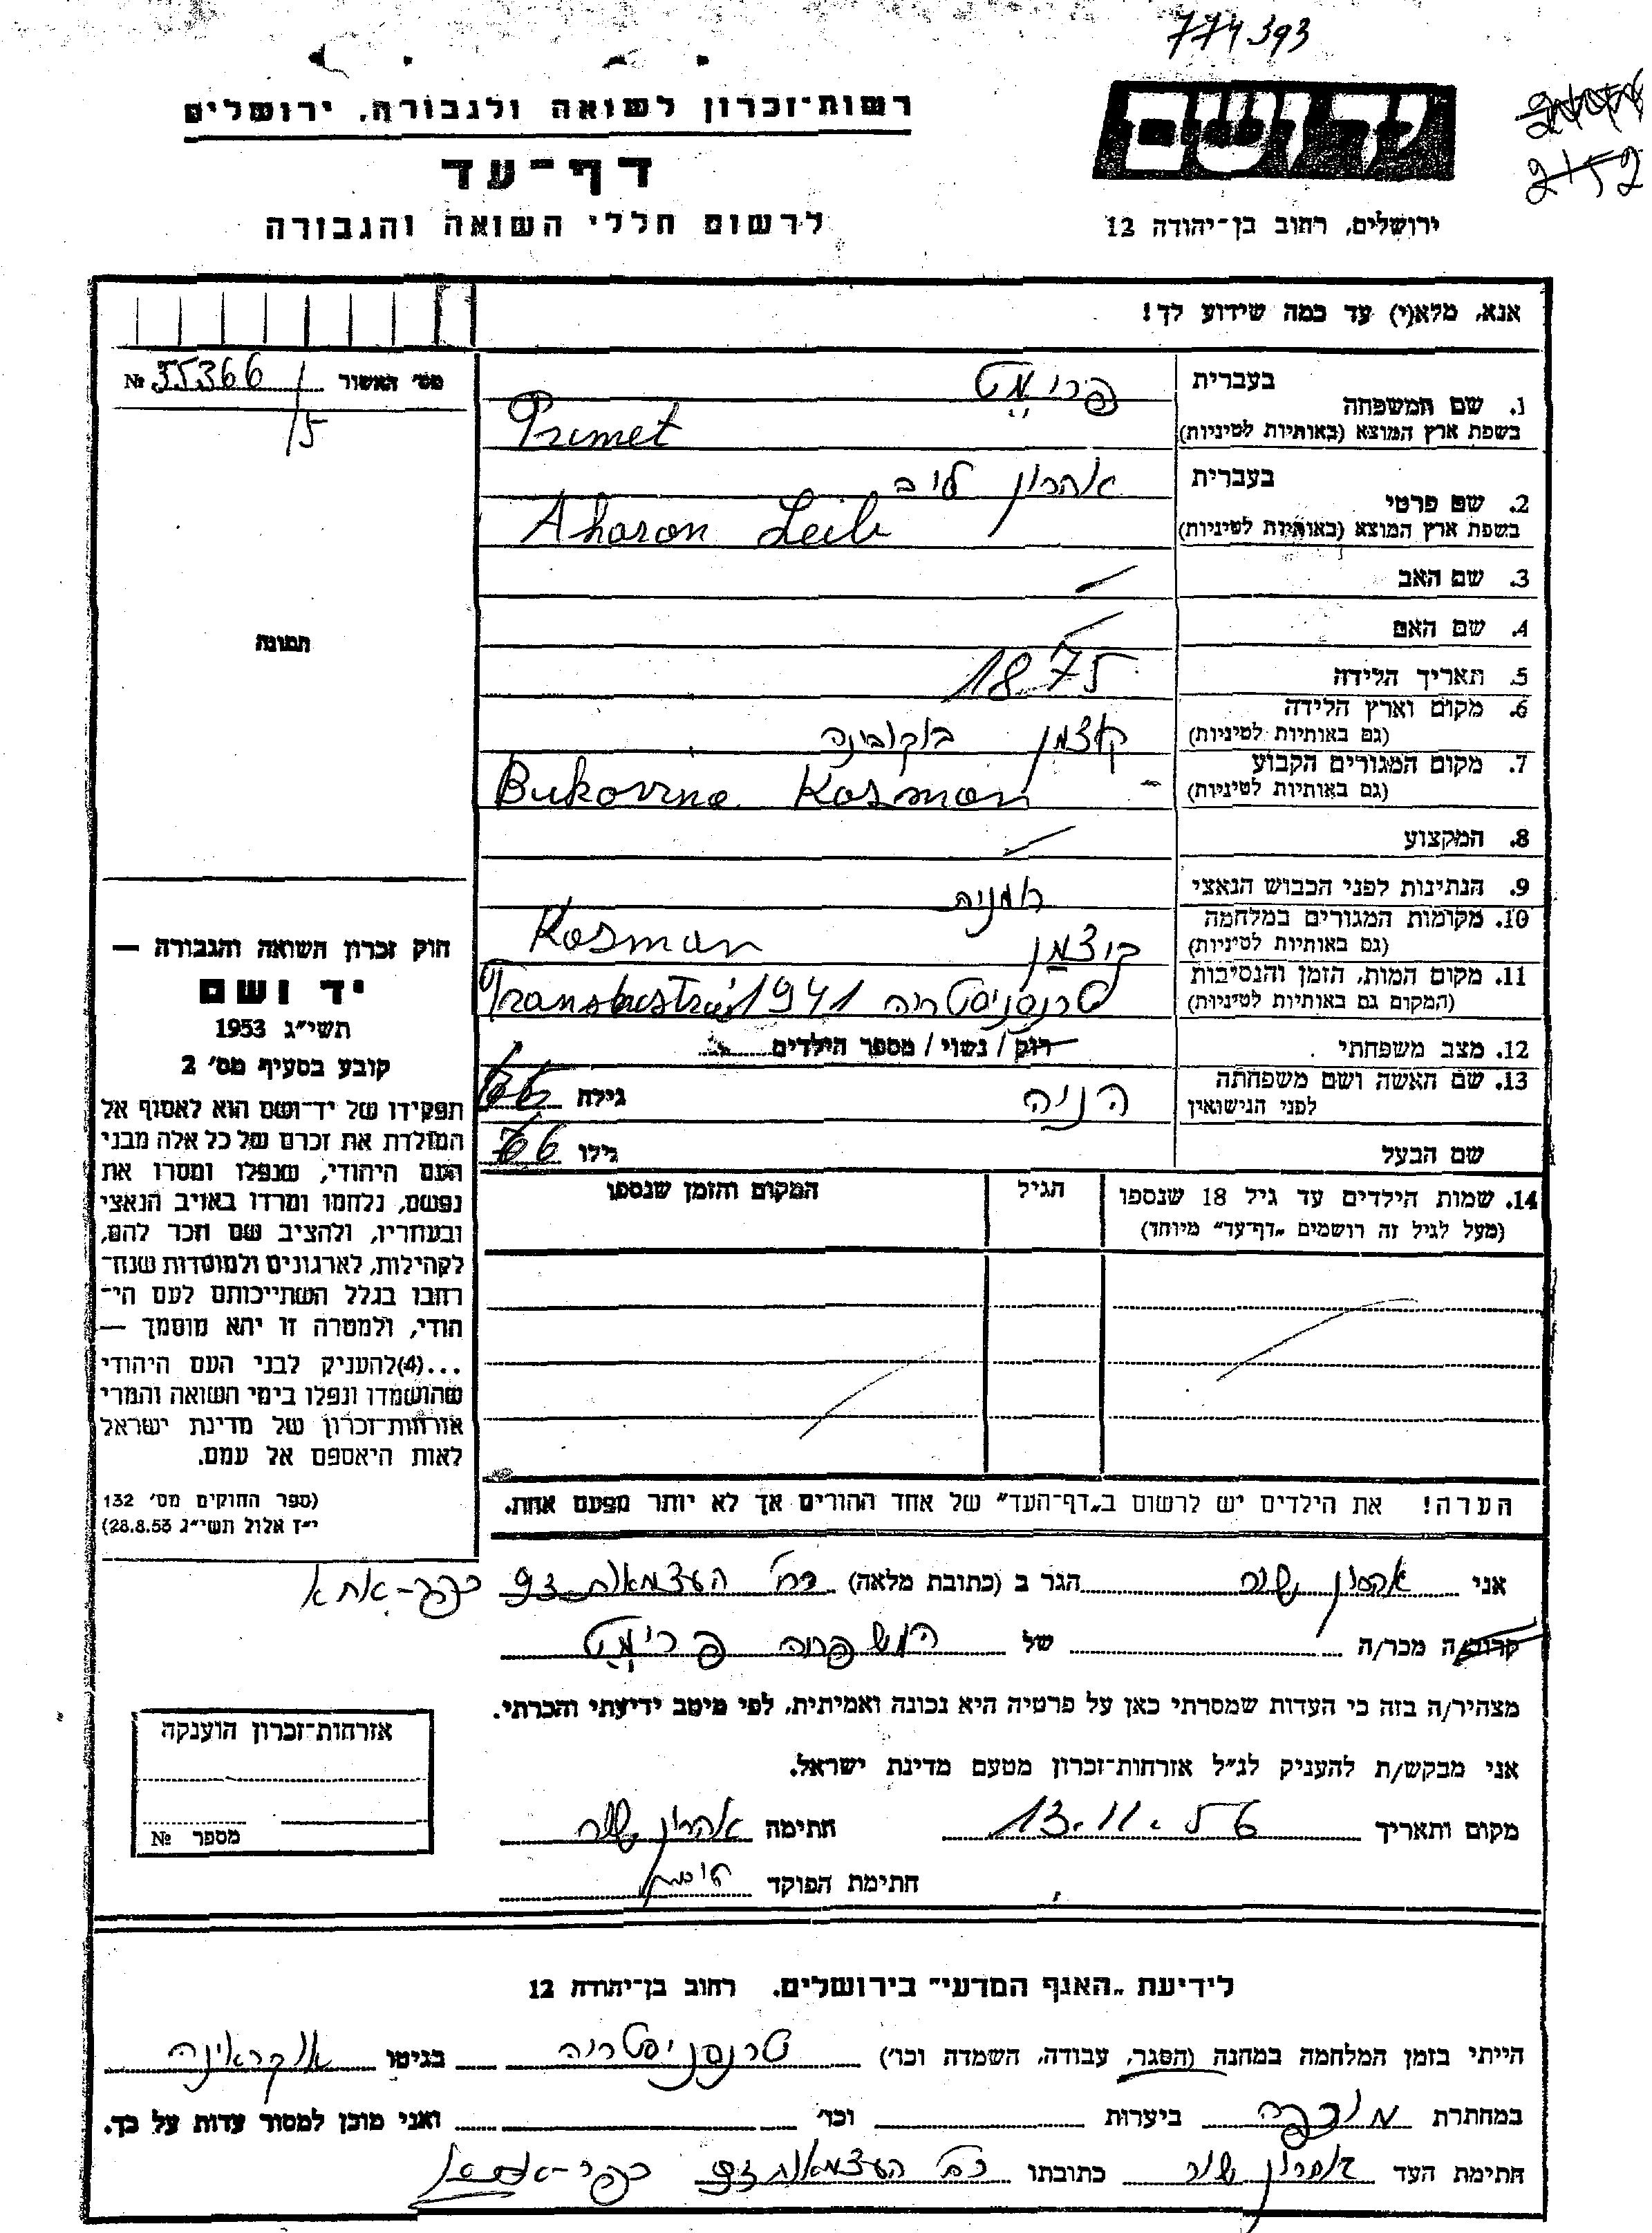 774393
רשות־זכרון לשואה ולגבורה, ירושלים
יד ושם
דף־עד
2152
לרשום חללי השואה והגבורה
ירושלים, רחוב בן־יהודה 12
אנא, מלא(י) עד כמה שידוע לך!
מס׳ האשור 35366 №
15
בעברית פרימט
1. שם המשפחה
בשפת ארץ המוצא (באותיות לטיניות) Primet
בעברית אהרון לויב
2. שם פרטי
בשפת ארץ המוצא (באותיות לטיניות) Aharon Leib
3. שם האב
4. שם האם
תמונה
5. תאריך הלידה 1875
6. מקום וארץ הלידה קאצמן בוקובינה
(גם באותיות לטיניות)
7. מקום המגורים הקבוע Bukovina Kosman
(גם באותיות לטיניות)
8. המקצוע
9. הנתינות לפני הכבוש הנאצי רומניה
10. מקומות המגורים במלחמה קוצמן Kosman
(גם באותיות לטיניות)
11. מקום המות, הזמן והנסיבות טרנסניסטריה 1941
(המקום גם באותיות לטיניות)
12. מצב משפחתי רווק / נשוי / מספר הילדים
13. שם האשה ושם משפחתה הניה גילה
לפני הנישואין
שם הבעל גילו 66
14. שמות הילדים עד גיל 18 שנספו הגיל המקום והזמן שנספו
(מעל לגיל זה רושמים „דף־עד” מיוחד)
חוק זכרון השואה והגבורה —
יד ושם
תשי״ג 1953
קובע בסעיף מס׳ 2
תפקידו של יד־ושם הוא לאסוף אל
המולדת את זכרם של כל אלה מבני
העם היהודי, שנפלו ומסרו את
נפשם, נלחמו ומרדו באויב הנאצי
ובעוזריו, ולהציב שם וזכר להם,
לקהילות, לארגונים ולמוסדות שנח־
רבו בגלל השתייכותם לעם הי־
הודי, ולמטרה זו יהא מוסמך —
...(4)להעניק לבני העם היהודי
שהושמדו ונפלו בימי השואה והמרי
אזרחות־זכרון של מדינת ישראל
לאות היאספם אל עמם.
(ספר החוקים מס׳ 132
י״ז אלול תשי״ג 28.8.53)
הערה! את הילדים יש לרשום ב„דף־העד” של אחד ההורים אך לא יותר מפעם אחת.
אני אהרון שור הגר ב (כתובת מלאה) רח׳ העצמאות 39 כפר־אתא
קרוב/ה מכר/ה של המשפחה פרימט
מצהיר/ה בזה כי העדות שמסרתי כאן על פרטיה היא נכונה ואמיתית, לפי מיטב ידיעתי והכרתי.
אני מבקש/ת להעניק לנ״ל אזרחות־זכרון מטעם מדינת ישראל.
מקום ותאריך 13.11.56 חתימה אהרון שור
חתימת הפוקד
אזרחות־זכרון הוענקה
מספר №
לידיעת „האגף המדעי” בירושלים, רחוב בן־יהודה 12
הייתי בזמן המלחמה במחנה (הסגר, עבודה, השמדה וכו׳) טרנסניסטריה בגיטו אוקראינה
במחתרת ביערות וכו׳ ואני מוכן למסור עדות על כך.
חתימת העד אהרון שור כתובתו רח׳ העצמאות 39 כפר־אתא